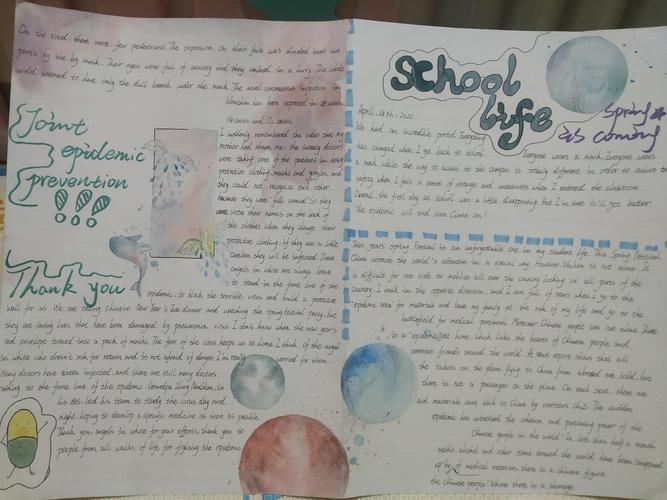 On the road, there were few pedestrians. The expression on their face was divided into two
parts by the big mask. Their eyes were full of anxiety and they walked in a hurry. The whole
world seemed to have only the dull breath under the mask. The novel coronavirus infection in
Wenshan has been reported in
Joint
epidemic
prevention
!!!
I suddenly remembered the video that my
mother had shown me: the sweaty doctors
were taking care of the patients in heavy
protective clothing, masks and goggles, and
they could not recognize each other
because they were full armed. So they
wrote their names on the back of
the clothes when they change their
protective clothing, if they are a little
careless they will be infected. These
angels in white are always brave
to stand in the front line of the
Thank you
epidemic, to block the terrible virus and build a protective
wall for us. We are eating Chinese New Year's Eve dinner and watching the Spring Festival party, but
they are saving lives that have been damaged by pneumonia virus. I don't know when the new year's
red envelope turned into a pack of masks. The fear of the virus keeps us at home. I think of the angel
in white who doesn't ask for return and is not afraid of danger. I'm really worried for them.
Many doctors have been infected, and there are still many doctors
rushing to the front line of the epidemic. Grandpa Zhong Nanshan, in
his 80s, led his team to study the virus day and
night, hoping to develop a specific medicine as soon as possible.
Thank you, angels in white for your efforts, thank you to
people from all walks of life for fighting the epidemic
School
life
Spring
is coming
April
2020
We had an incredible period. Everything
has changed when I get back to school.
Everyone wears a mask. Everyone wears
a mask while the way to access to the campus is totally different in order to ensure
safety when I felt a sense of strange and uneasiness when I entered the classroom.
Overall, the first day at school was a little disappointing. But I'm sure it'll get better.
The epidemic will end soon. Come on!
This year's Spring Festival is an unforgettable one in my student life. This Spring Festival,
China attracts the world's attention in a special way. However, Wuhan is not alone. It
is difficult for one side to mobilize all over the country. Looking at all parts of the
country, I walk in the opposite direction, and I am full of tears when I go to the
epidemic area for materials and leave my family at the risk of my life and go to the
battlefield for medical personnel. Moreover, Chinese people are not alone. There
is a home, which links the hearts of Chinese people and
overseas friends around the world. A news report shows that all
the tickets on the plane flying to China from abroad are sold, but
there is not a passenger on the plane. On each seat, there are
materials sent back to China by overseas The sudden
epidemic has witnessed the cohesion and power of the
Chinese people in the world. In less than half a month
masks, alcohol and other items around the world have been "snapped
up" by of medical materials, there is a Chinese figure
the Chinese people! Where there is a shortage